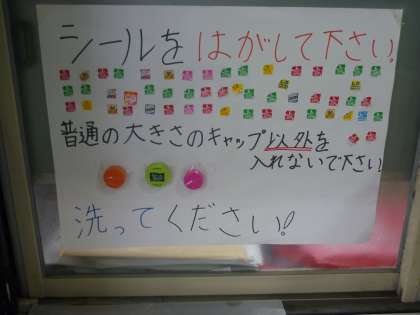 シールをはがして下さい!
普通の大きさのキャップ以外を
入れないで下さい
洗ってください!